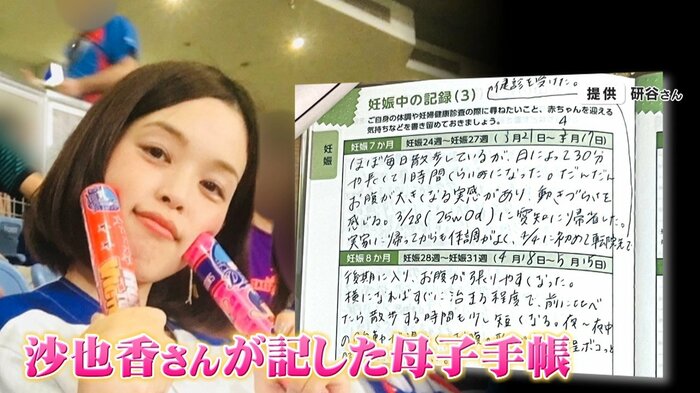 健診を受けた。
提供 研谷さん
妊娠中の記録(3)
ご自身の体調や妊婦健康診査の際に尋ねたいこと、赤ちゃんを迎える
気持ちなどを書き留めておきましょう。
妊娠
妊娠7か月 妊娠24週~妊娠27週( 3月21日~4月17日)
ほぼ毎日散歩しているが、日によって30分
や長くて1時間くらいめになった。だんだん
お腹が大きくなる実感があり、動きづらさを
感じる。3/28(25w0d)に愛知に帰省した。
実家に帰ってからも体調がよく、4/4に初めて転院先で
妊娠8か月 妊娠28週~妊娠31週( 4月18日~5月15日)
後期に入り、お腹が張りやすくなった。
横になればすぐに治まる程度で、前に比べ
たら散歩する時間も少し短くなる。夜~夜中
沙也香さんが記した母子手帳